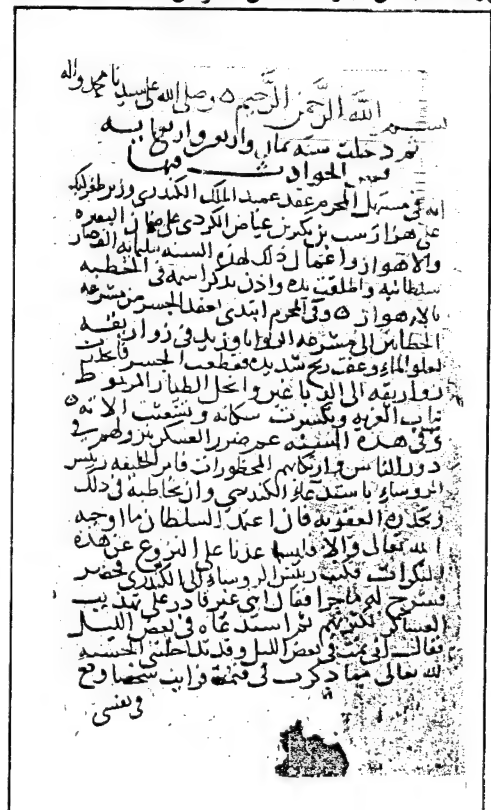 بسم الله الرحمن الرحيم وصلى الله على سيدنا محمد واله
ثم دخلت سنة ثمان واربعين واربعمايه
فمن الحوادث فيها
انه في مستهل المحرم عقد عميد الملك الكندري وزير طغرلبك
على هزارسب بن بنكير بن عياض الكردي على ضمان البصره
والاهواز واعمال ذلك لهذه السنه بثلثمائه الف دينار
سلطانيه واطلقت يده واذن بذكر اسمه في الخطبه
بالاهواز وفي المحرم ابتدئ بعقد الجسر من مشرعه
الحطابين الى مشرعه الروايا وزيد في زواريقه
لعلو الماء وعقب ريح شديده فقطعت الجسر فانحدرت
زواريقه الى الدباغين وانحل الطيار المربوط
بباب الغربه وتكسرت سكانه وتشعثت الاته
وفي هذه السنه عم ضرر العسكر بنزولهم في
دور الناس وارتكابهم المحظورات فامر الخليفه رئيس
الروساء باستدعاء الكندري وان يخاطبه في ذلك
ويحذره العقوبه فان اعتمد السلطان ما اوجبه
الله تعالى والا فليساعدنا على النزوح عن هذه
المنكرات فكتب رئيس الروساء الى الكندري فحضر
فشرح له ما جرا فقال انني غير قادر على تهذيب
العساكر لكثرتهم ثم استدعاه في بعض الليل
فقال اني بت في بعض الليل وقد تداخلني الخشيه
لله تعالى مما ذكرت فنمت فرايت شخصا وقع
في نفسي